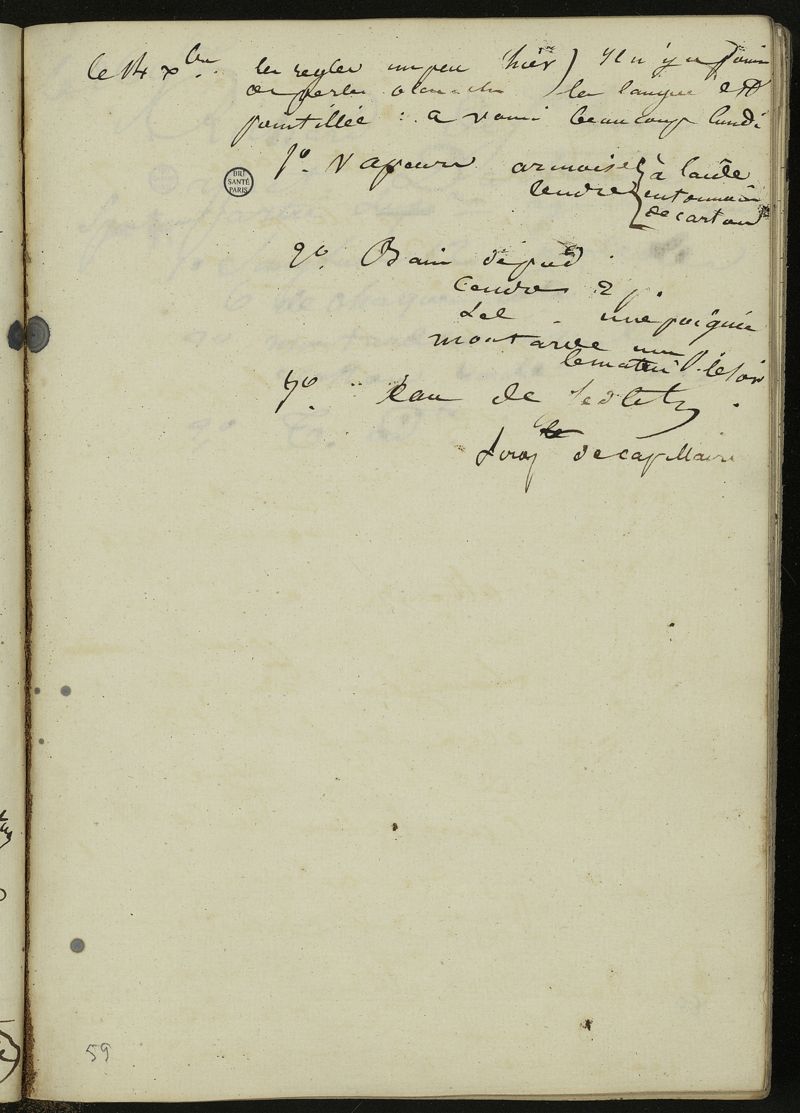 le 14 xbre les regles un peu hier) il n'y a point
de perte blanche la langue est
pointillée : a vomi beaucoup lundi
BHJ
SANTÉ
PARIS
1o Vapeurs armoise } à l'aide
cendre } entonnoir
de carton
2o. Bain de pied
Cendre 2
Sel une poignée
moutarde
le matin le soir
3o eau de Sedlitz
Sirop de capillaire
59